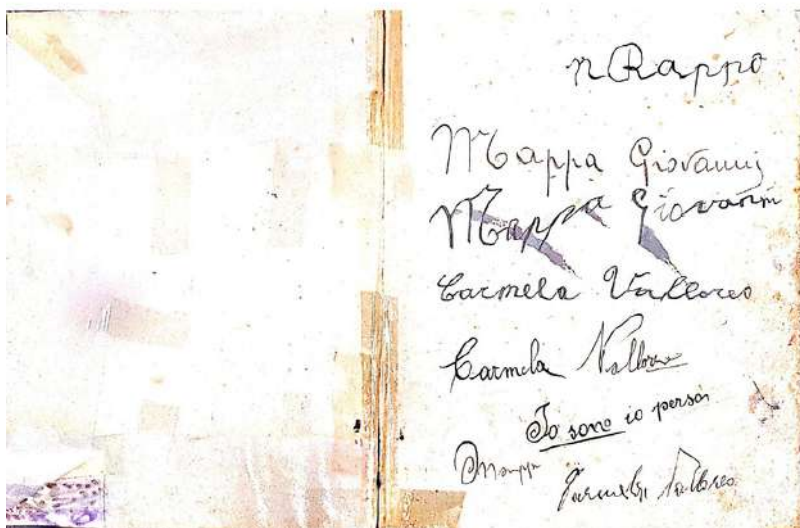 Rappo
Mappa Giovanni
Mappa Giovanni
Carmela Valloreo
Carmela
Io sono io person
Mappa
Carmela Valloreo